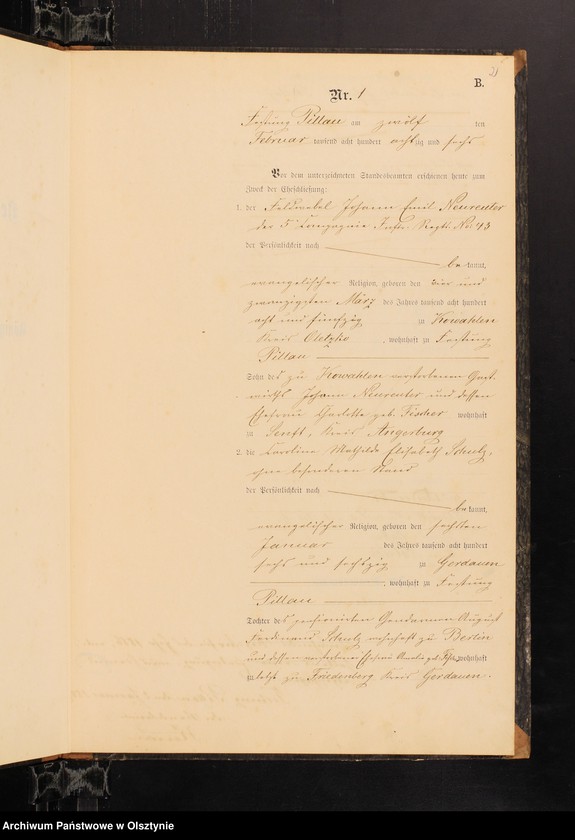 21
B.
Nr. 1
Festung Pillau am zwölf ten
Februar tausend acht hundert achtzig und sechs
Vor dem unterzeichneten Standesbeamten erschienen heute zum
Zweck der Eheschließung:
1. der Feldwebel Johann Emil Neureuter
der 5 Compagnie Inftr. Regts. No 43
der Persönlichkeit nach
be kannt,
evangelischer Religion, geboren den vier und
zwanzigsten März des Jahres tausend acht hundert
acht und fünfzig zu Kowahlen
Kreis Oletzko, wohnhaft zu Festung
Pillau
Sohn des zu Kowahlen verstorbenen Gast-
wirths Johann Neureuter und dessen
Ehefrau Charlotte geb. Fischer wohnhaft
zu Kreis Angerburg
2. die Caroline Mathilde Elisabeth Schulz,
ohne besonderen Stand
der Persönlichkeit nach
be kannt,
evangelischer Religion, geboren den sechsten
Januar des Jahres tausend acht hundert
sechs und sechszig zu Gerdauen
, wohnhaft zu Festung
Pillau
Tochter des pensionirten Gendarmen August
Ferdinand Schulz wohnhaft zu Berlin
und dessen verstorbener Ehefrau Amalie geb. wohnhaft
zuletzt zu Friedenberg Kreis Gerdauen.
Archiwum Państwowe w Olsztynie